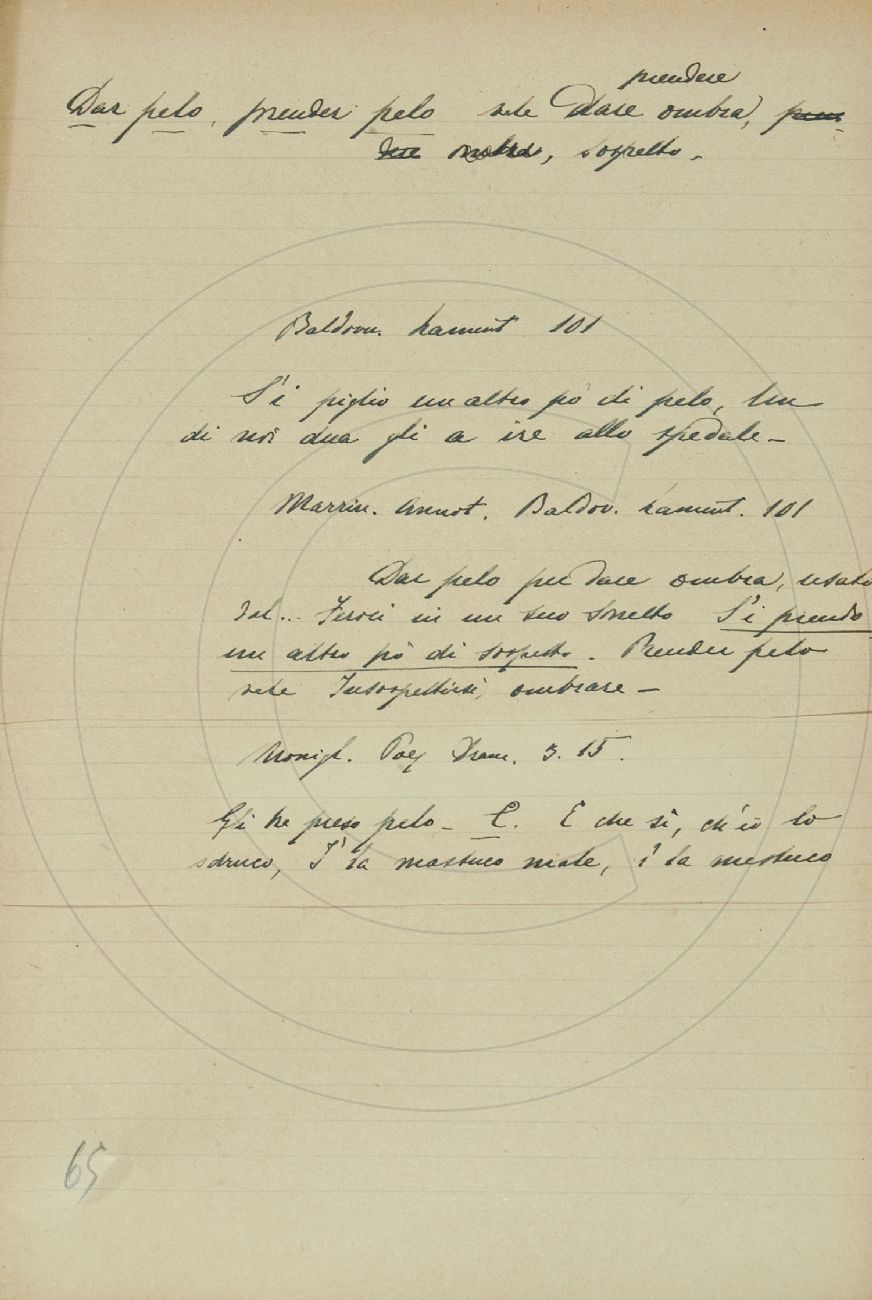 prendere
Dar pelo, prender pelo vale Dare ombra,
sospetto.
Baldov. Lament 101
S'i piglio un altro pò di pelo, Un
di noi dua gli a ire allo spedale —
Marrin. Annot. Baldov. Lament. 101
Dar pelo per dare ombra, usato
dal... Feroci in un suo Sonetto S'i prendo
un altro pò di sospetto. Prender pelo
vale Insospettirsi, ombrare —
Monigl. Poes Dram. 3. 15.
Gli ha preso pelo — C. E che sì, ch'io lo
sdruco, I' la mastuco male, i' la mastuco
65